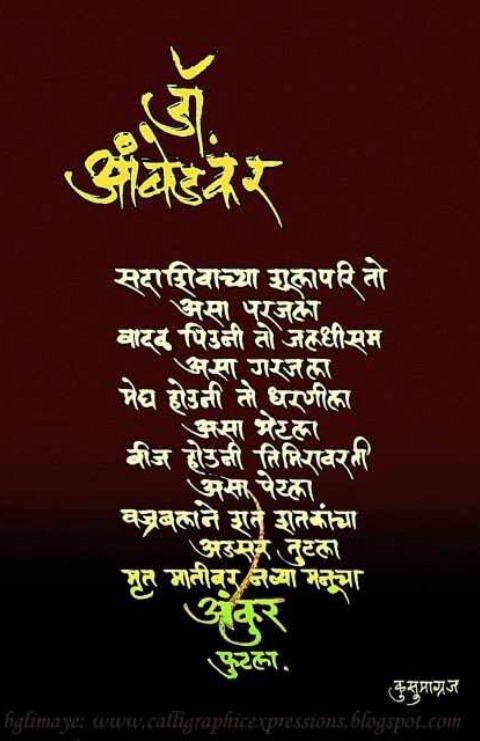 डॉ.
आंबेडकर
सदाशिवाच्या शुलापरि तो
असा परजला
वादळ पिउनी तो जलधीसम
असा गरजला
मेघ होउनी तो धरणीला
असा भेटला
वीज होउनी तिमिरावरती
असा पेटला
वज्रबलाने शत शतकांचा
अडसर तुटला
मृत मातीवर नव्या मनूचा
अंकुर
फुटला.
कुसुमाग्रज
bglimaye: www.calligraphicexpressions.blogspot.com